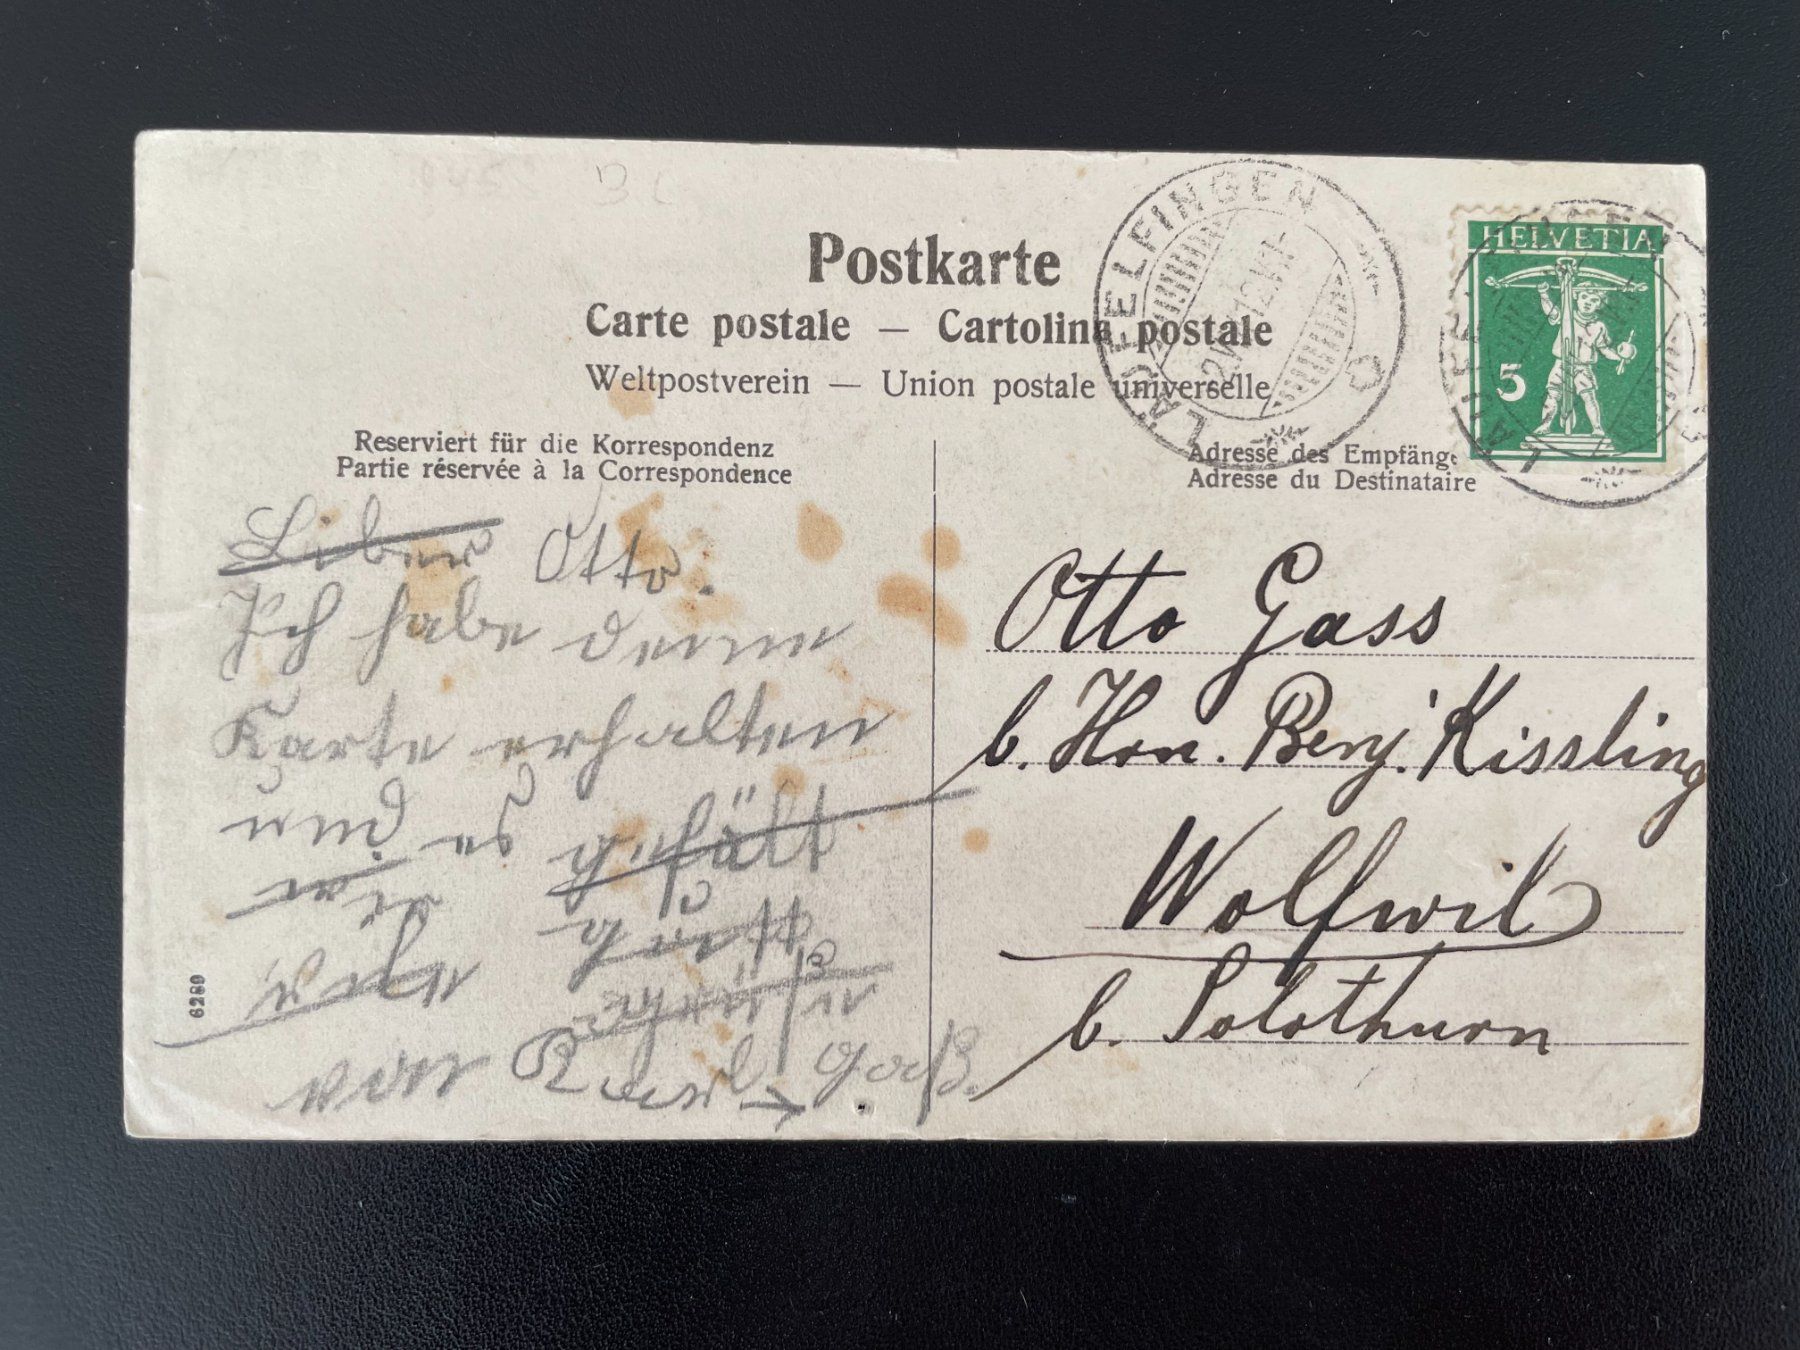 Postkarte
Carte postale — Cartolina postale
Weltpostverein — Union postale universelle
Reserviert für die Korrespondenz
Partie réservée à la Correspondence
Adresse des Empfänge
Adresse du Destinataire
LÄUFELFINGEN
HELVETIA
5
Liber Otto.
Ich habe deine
Karte erhalten
und es gefält
dir
von Karl Gaß.
Otto Gass
b. Hrn. Benj. Kissling
Wolfwil
b. Solothurn
6280